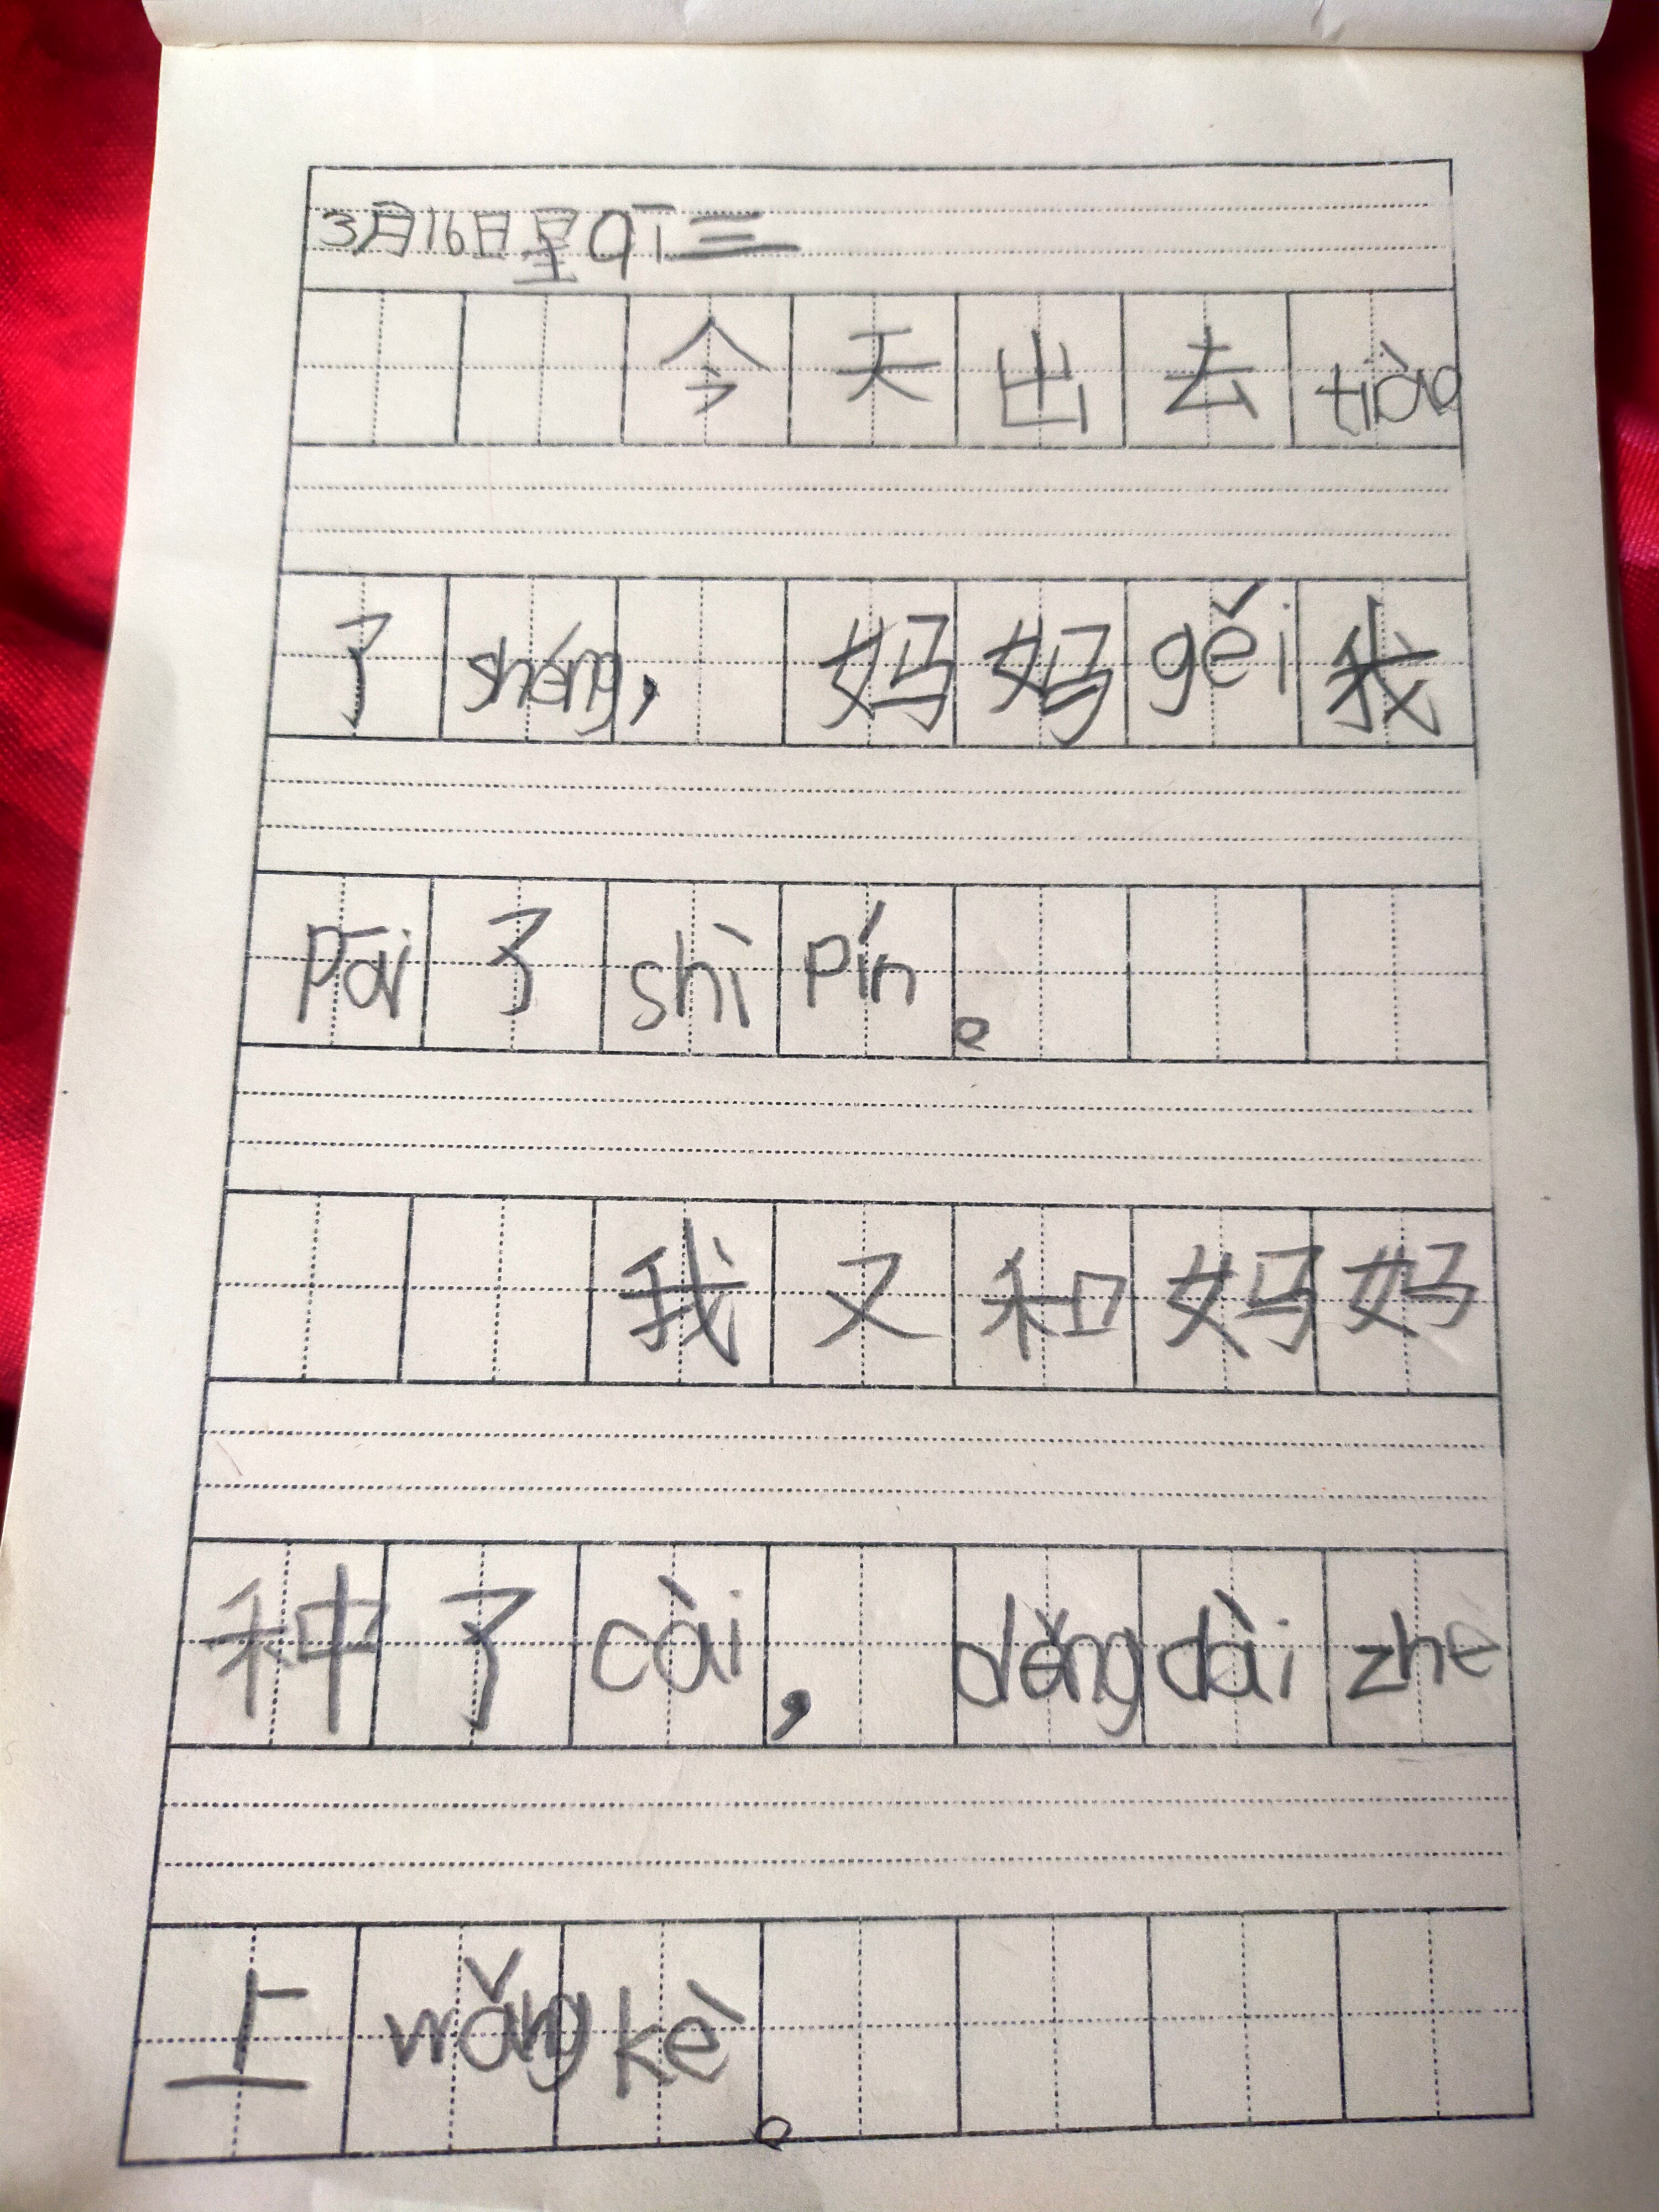 3月16日星qī三
今天出去tiào
了shéng，妈妈gěi我
pāi了shì pín。
我又和妈妈
种了cài，děng dài zhe
上wǎng kè。